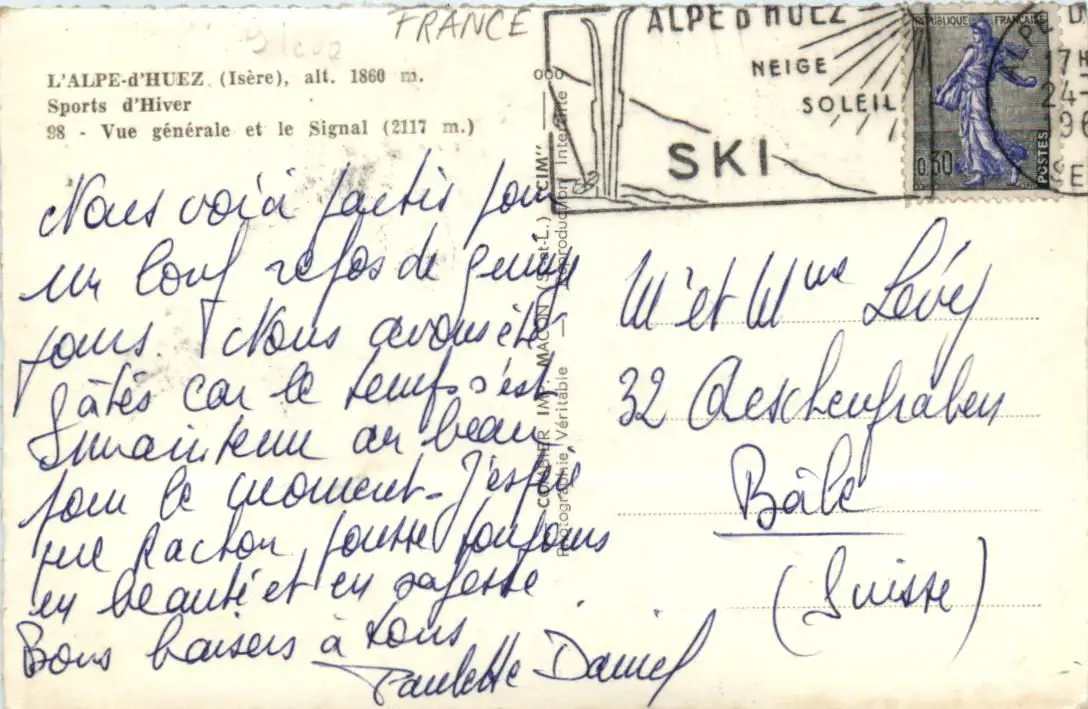 FRANCE
L'ALPE-d'HUEZ (Isère), alt. 1860 m.
Sports d'Hiver
98 - Vue générale et le Signal (2117 m.)
ALPE D HUEZ
NEIGE
SOLEIL
SKI
REPUBLIQUE FRANÇAISE
0,30
POSTES
7H
24-
Nous voici partis pour
un long repos de quinze
jours. Nous avons été
gâtés car le temps s'est
maintenu au beau
pour le moment. J'espère
que pousse toujours
en beauté et en sagesse
Bons baisers à tous
Paulette Daniel
COMBIER IMP. MACON (S.-et-L.) "CIM"
Photographie Véritable — Reproduction Interdite
Mr et Mme Lévy
32 Aeschengraben
Bâle
(Suisse)